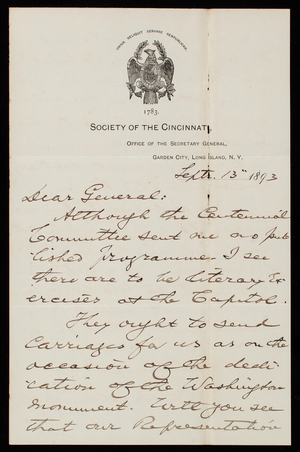 OMNIA RELIQUIT SERVARE REMPUBLICAM
1783.
SOCIETY OF THE CINCINNATI,
OFFICE OF THE SECRETARY GENERAL,
GARDEN CITY, LONG ISLAND, N. Y.
Sept. 13th 1893
Dear General:
Although the Centennial
Committee sent me no pub
lished programme I see
there are to be literary Ex
ercises at the Capitol.
They ought to send
Carriages for us as on the
occasion of the dedi-
cation of the Washington
monument. Will you see
that our Representation